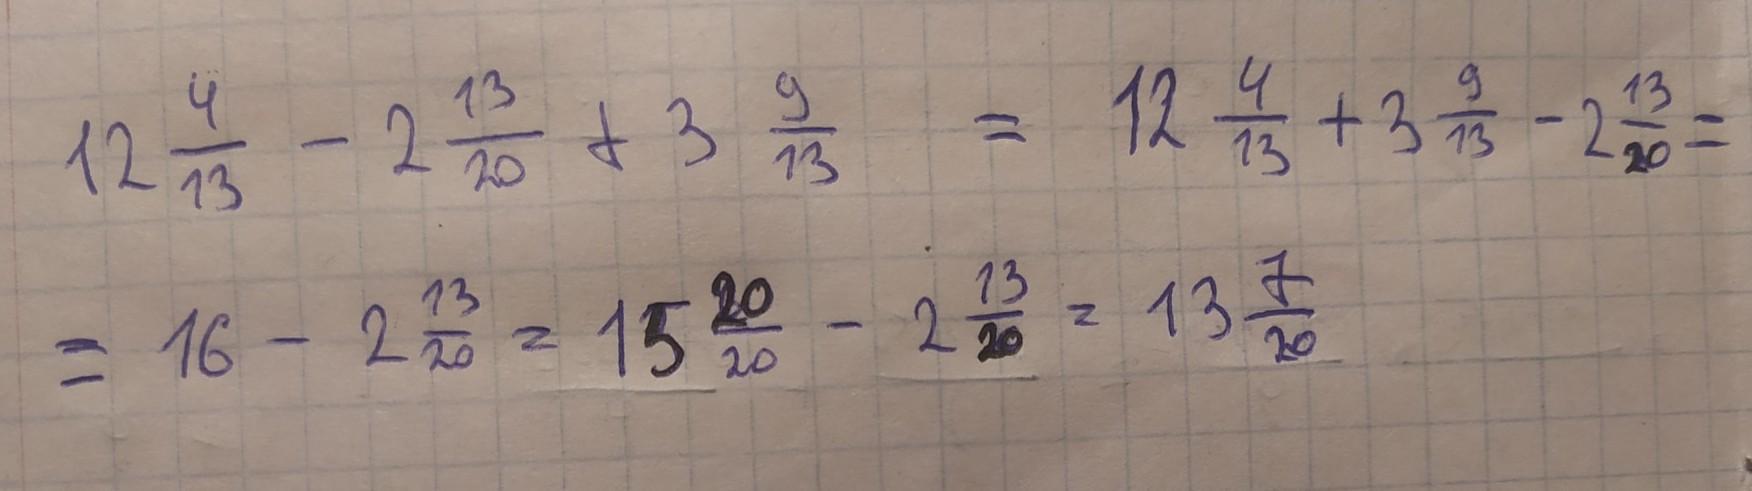 12 4/13 - 2 13/20 + 3 9/13 = 12 4/13 + 3 9/13 - 2 13/20 =
= 16 - 2 13/20 = 15 20/20 - 2 13/20 = 13 7/20